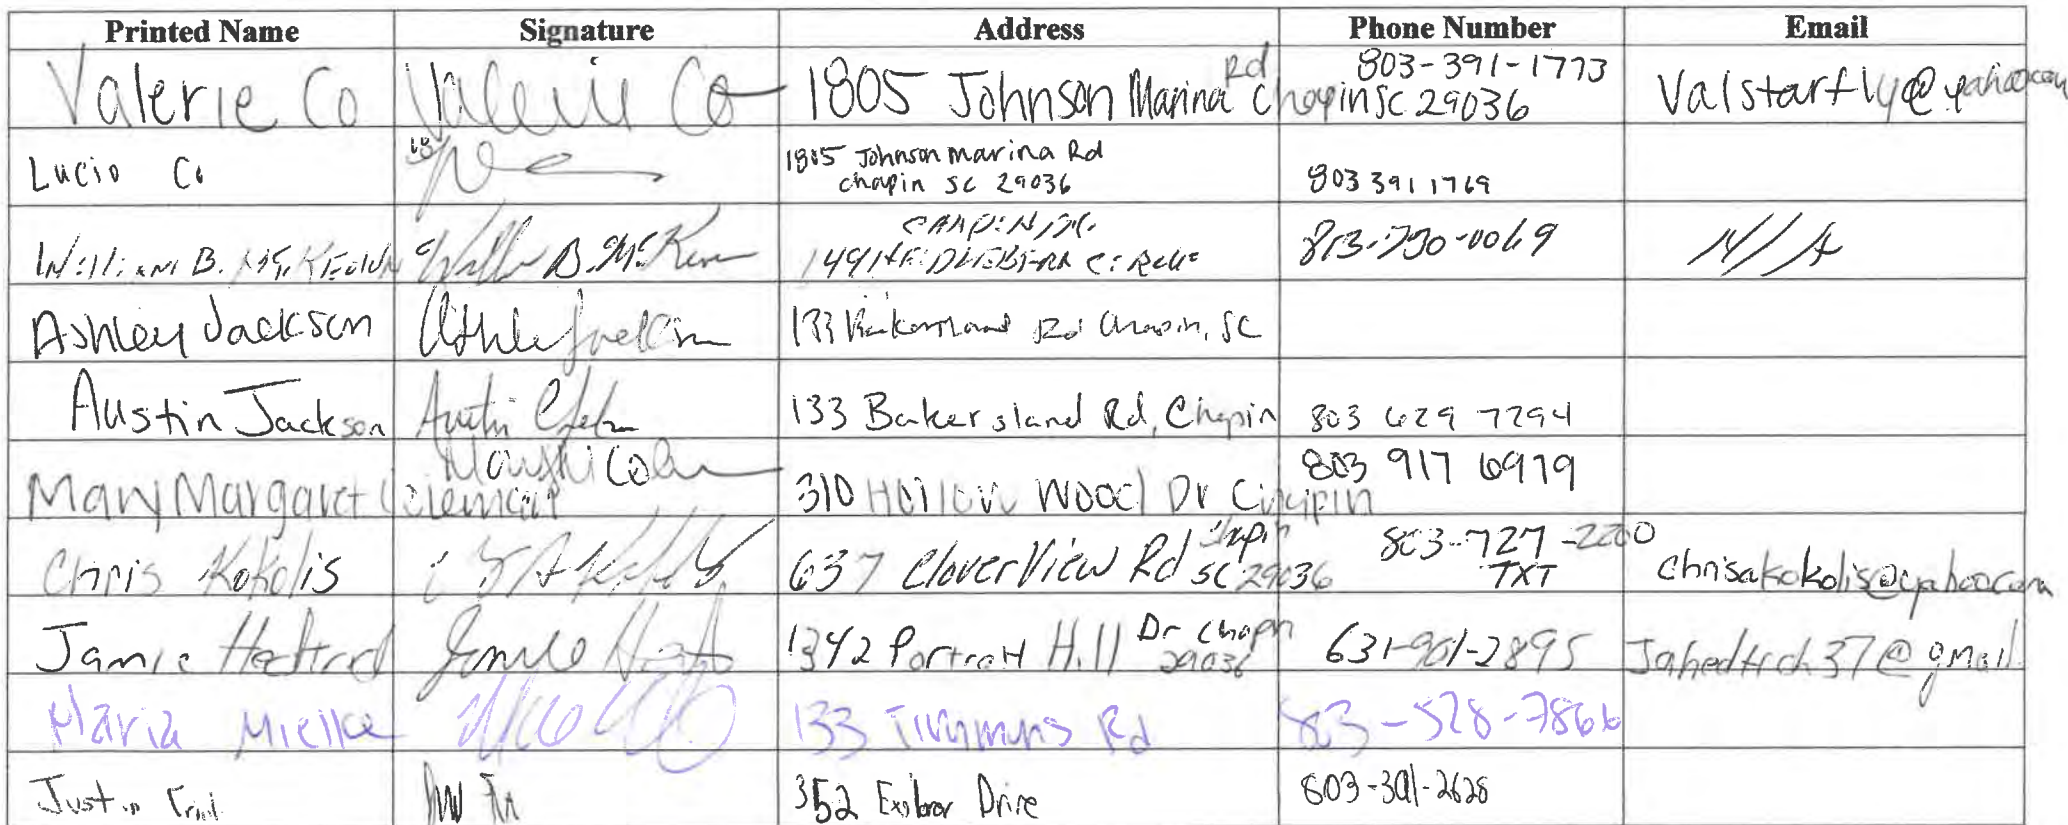 Printed Name Signature Address Phone Number Email
Valerie Co Valerie Co 1805 Johnson Marina Rd Chapin SC 29036 803-391-1773 Valstarfly@yahoo.com
Lucio Co 1805 Johnson Marina Rd
chapin SC 29036 803 391 1769
William B. McKeown B. McKeown 149 Circle N/A
Ashley Jackson Ashley Jackson 133 Rd Chapin, SC
Austin Jackson Austin 133 Bakersland Rd, Chapin 803 629 7294
Mary Margaret Coleman 310 Hollow Wood Dr Chapin 803 917 6979
Chris Kokolis 637 Cloverview Rd Chapin SC 29036 803-727-2200
TXT chrisakokolis@yahoo.com
Jamie 1342 Portrait Hill Dr Chapin
29036 631-901-2895 Jahedtrch37@gmail
Maria Mielke 133 Timmons Rd 803-528-7866
Justin 352 Drive